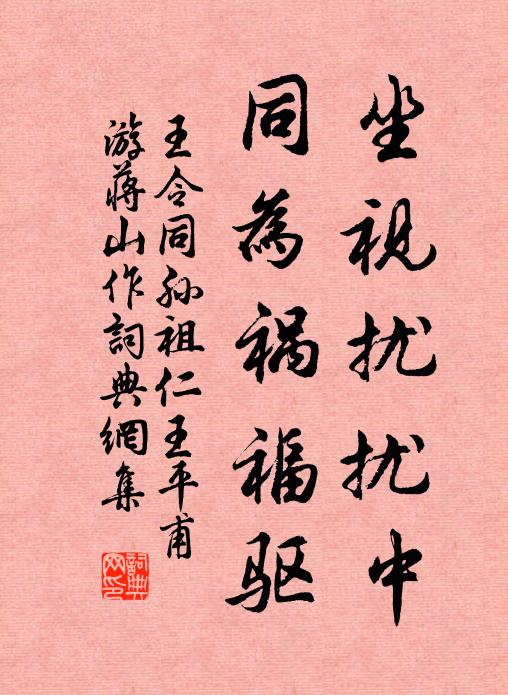 坐視扰扰中
同為祸福驱
王令同孙祖仁王平甫
游蒋山作詞典網集
詞典網印